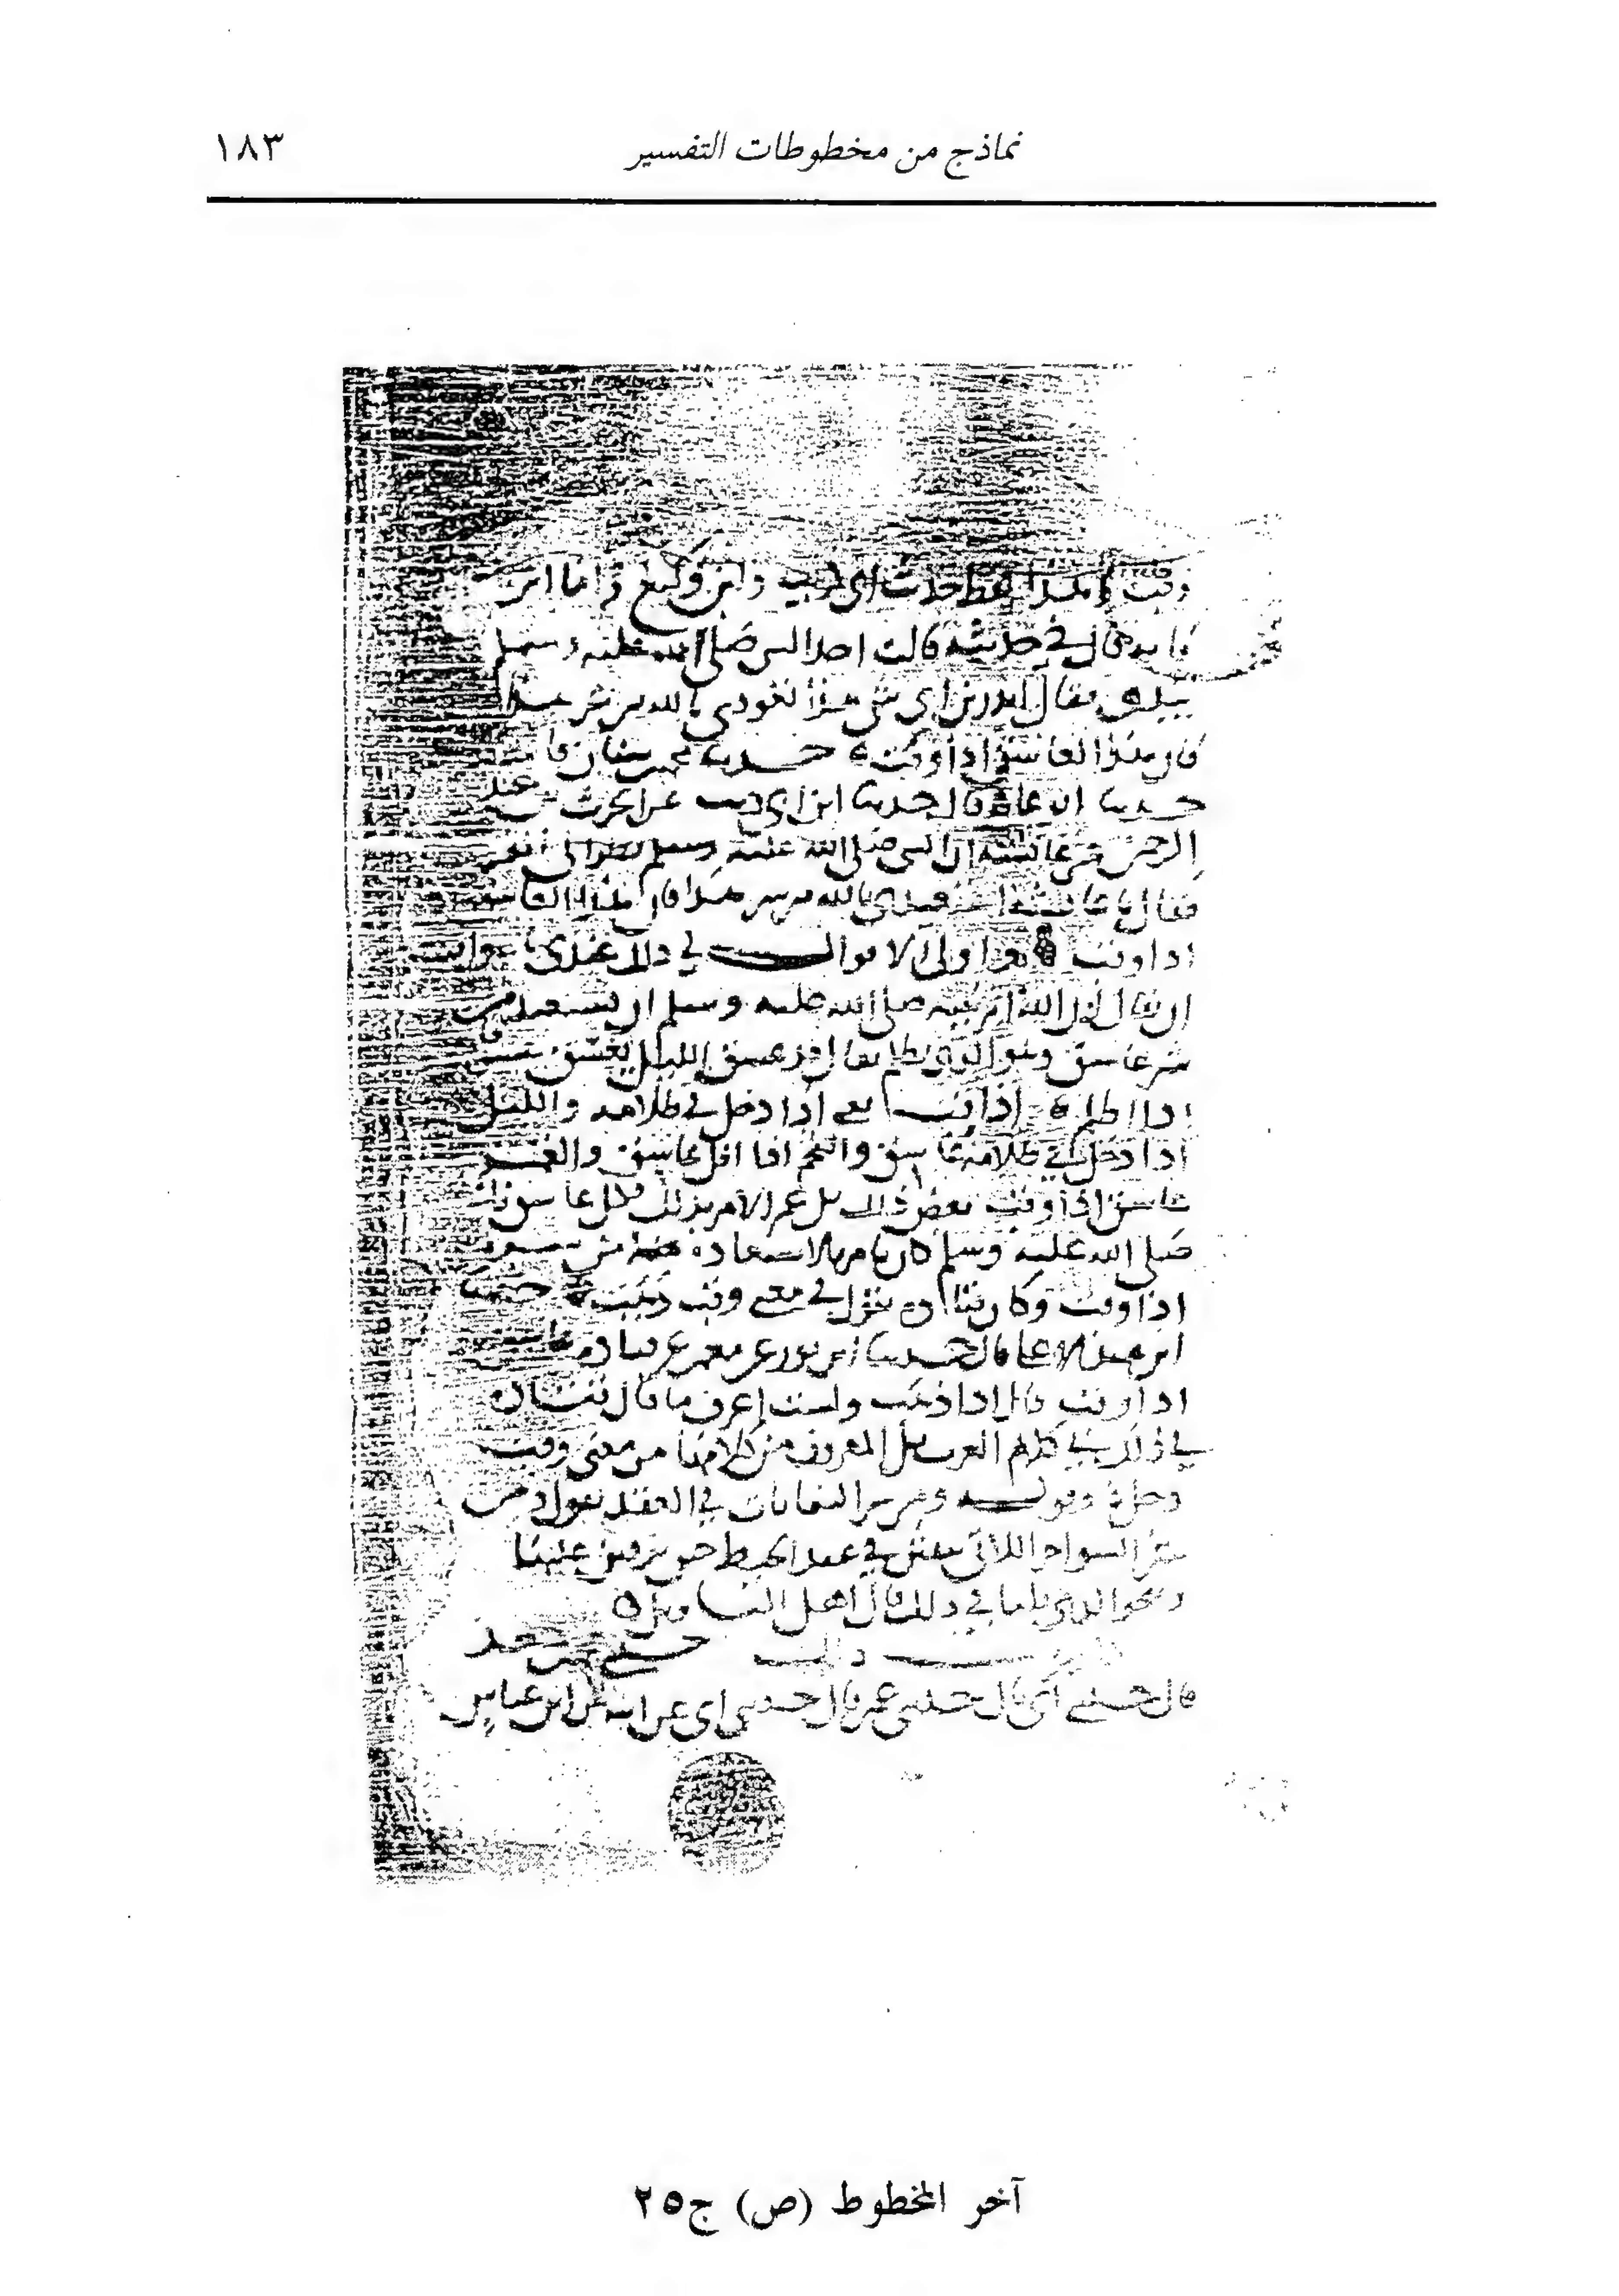 نماذج من مخطوطات التفسير
١٨٣
وقب وهذا لفظ حديث أبي كريب وابن وكيع وأما ابن
فإنه قال في حديثه قالت أخذ النبي صلى الله عليه وسلم
بيدي فقال أتدرين أي شيء هذا تعوذي بالله من شر هذا
فإن هذا الغاسق إذا وقب حدثنا محمد بن سنان قال
حدثنا أبو عامر قال حدثنا ابن أبي ذئب عن الحرث بن عبد
الرحمن عن عائشة أن النبي صلى الله عليه وسلم نظر إلى القمر
فقال يا عائشة استعيذي بالله من شر هذا فإن هذا الغاسق
إذا وقب وأولى الأقوال في ذلك عندي بالصواب
أن يقال إن الله أمر نبيه صلى الله عليه وسلم أن يستعيذ من
شر غاسق وهو الذي يظلم يقال قد غسق الليل يغسق
إذا أظلم إذا وقب يعني إذا دخل في ظلامه والليل
إذا دخل في ظلامه غاسق والنجم إذا أفل غاسق والقمر
غاسق إذا وقب بعض ذلك بل عم الأمر بذلك فكل غاسق فإنه
صلى الله عليه وسلم كان يأمر بالاستعاذة من شره
إذا وقب وكان قتادة يقول في معنى وقب ذهب حدثنا
ابن عبد الأعلى قال حدثنا ابن ثور عن معمر عن قتادة غاسق
إذا وقب قال إذا ذهب ولست أعرف ما قال قتادة
في ذلك في كلام العرب بل المعروف من كلامها من معنى وقب
دخل وقوله ومن شر النفاثات في العقد يقول ومن
شر السواحر اللاتي ينفثن في عقد الخيط حين يرقين عليها
وبنحو الذي قلنا في ذلك قال أهل التأويل
ذلك حدثني محمد بن سعد
قال حدثني أبي قال حدثني عمي قال حدثني أبي عن أبيه عن ابن عباس
آخر المخطوط (ص) ج٢٥